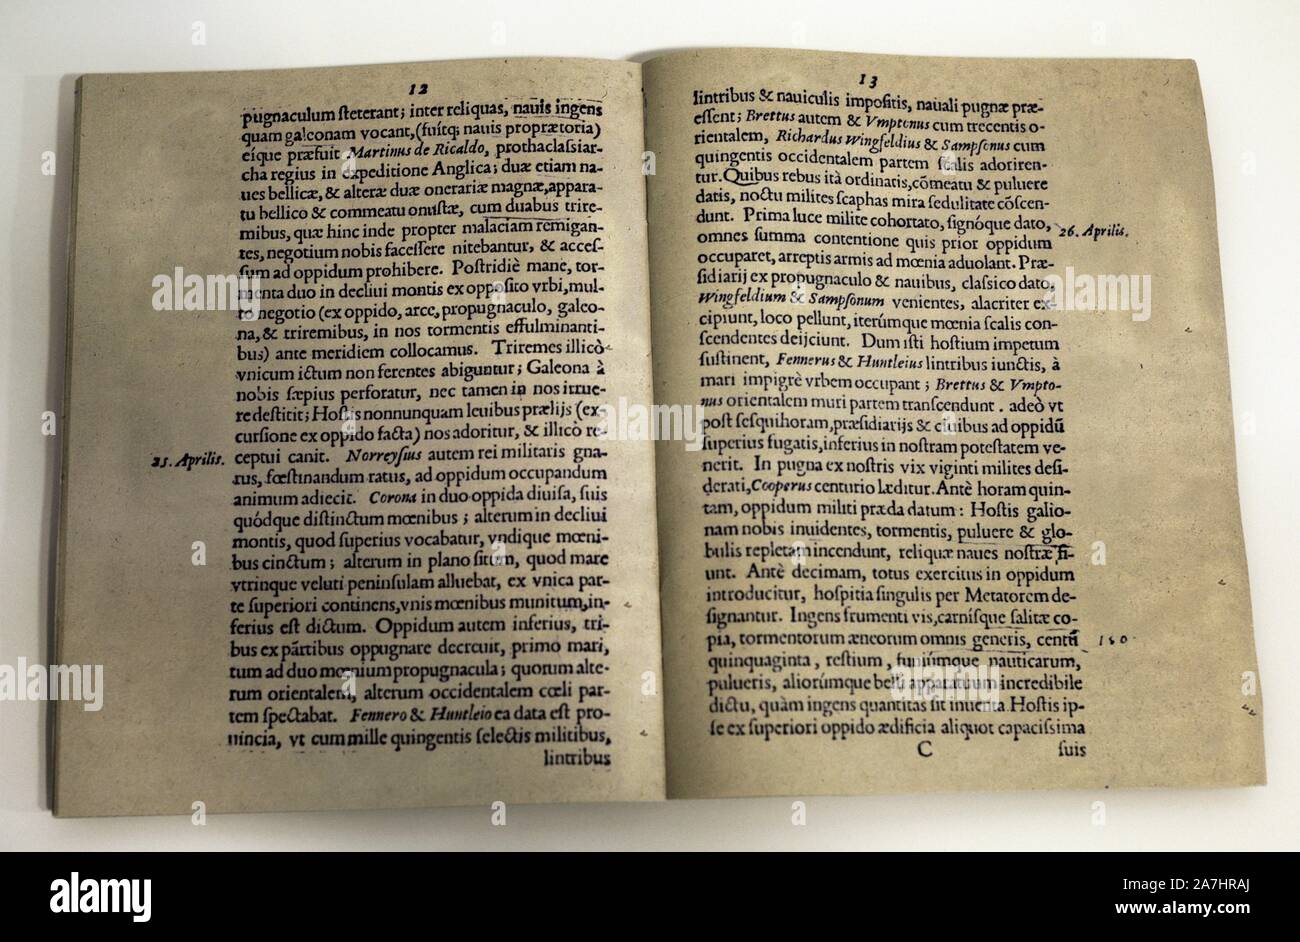 12
pugnaculum steterant; inter reliquas, nauis ingens
quam galeonam vocant, (fuítq; nauis proprætoria)
eíque præfuit Martinus de Ricaldo, prothaclassiar-
cha regius in expeditione Anglica; duæ etiam na-
ues bellicæ, & alteræ duæ onerariæ magnæ, appara-
tu bellico & commeatu onustæ, cum duabus trire-
mibus, quæ hinc inde propter malaciam remigan-
tes, negotium nobis facessere nitebantur, & acces-
sum ad oppidum prohibere. Postridiè mane, tor-
menta duo in decliui montis ex opposito vrbi, mul-
to negotio (ex oppido, arce, propugnaculo, galeo-
na, & triremibus, in nos tormentis effulminanti-
bus) ante meridiem collocamus. Triremes illicò
vnicum ictum non ferentes abiguntur; Galeona à
nobis sæpius perforatur, nec tamen in nos itrue-
re destitit; Hostis nonnunquam leuibus prælijs (ex-
cursione ex oppido facta) nos adoritur, & illicò re-
25. Aprilis. ceptui canit. Norreysius autem rei militaris gna-
rus, fœstinandum ratus, ad oppidum occupandum
animum adiecit. Corona in duo oppida diuisa, suis
quódque distinctum mœnibus; alterum in decliui
montis, quod superius vocabatur, vndique mœni-
bus cinctum; alterum in plano situm, quod mare
vtrinque veluti peninsulam alluebat, ex vnica par-
te superiori continens, vnis mœnibus munitum, in-
ferius est dictum. Oppidum autem inferius, tri-
bus ex partibus oppugnare decreuit, primo mari,
tum ad duo mœnium propugnacula; quorum alte-
rum orientalem, alterum occidentalem cœli par-
tem spectabat. Fennero & Huntleio ea data est pro-
uincia, vt cum mille quingentis selectis militibus,
lintribus
13
lintribus & nauiculis impositis, nauali pugnæ præ-
essent; Brettus autem & Vmptonus cum trecentis o-
rientalem, Richardus Wingfeldius & Sampsonus cum
quingentis occidentalem partem scalis adoriren-
tur. Quibus rebus ità ordinatis, cōmeatu & puluere
datis, noctu milites scaphas mira sedulitate cōscen-
dunt. Prima luce milite cohortato, signóque dato, 26. Aprilis.
omnes summa contentione quis prior oppidum
occuparet, arreptis armis ad mœnia aduolant. Præ-
sidiarij ex propugnaculo & nauibus, classico dato,
Wingfeldium & Sampsonum venientes, alacriter ex-
cipiunt, loco pellunt, iterúmque mœnia scalis con-
scendentes deijciunt. Dum isti hostium impetum
sustinent, Fennerus & Huntleius lintribus iunctis, à
mari impigrè vrbem occupant; Brettus & Vmpto-
nus orientalem muri partem transcendunt. adeò vt
post sesquihoram, præsidiarijs & ciuibus ad oppidū
superius fugatis, inferius in nostram potestatem ve-
nerit. In pugna ex nostris vix viginti milites desi-
derati, Cooperus centurio læditur. Antè horam quin-
tam, oppidum militi præda datum: Hostis galio-
nam nobis inuidentes, tormentis, puluere & glo-
bulis repletam incendunt, reliquæ naues nostræ fi-
unt. Antè decimam, totus exercitus in oppidum
introducitur, hospitia singulis per Metatorem de-
signantur. Ingens frumenti vis, carnísque salitæ co-
pia, tormentorum æneorum omnis generis, centū 150
quinquaginta, restium, funiúmque nauticarum,
pulueris, aliorúmque belli apparatuum incredibile
dictu, quàm ingens quantitas sit inuenta. Hostis ip-
se ex superiori oppido ædificia aliquot capacissima
C suis
alamy
Image ID: 2A7HRAJ
www.alamy.com